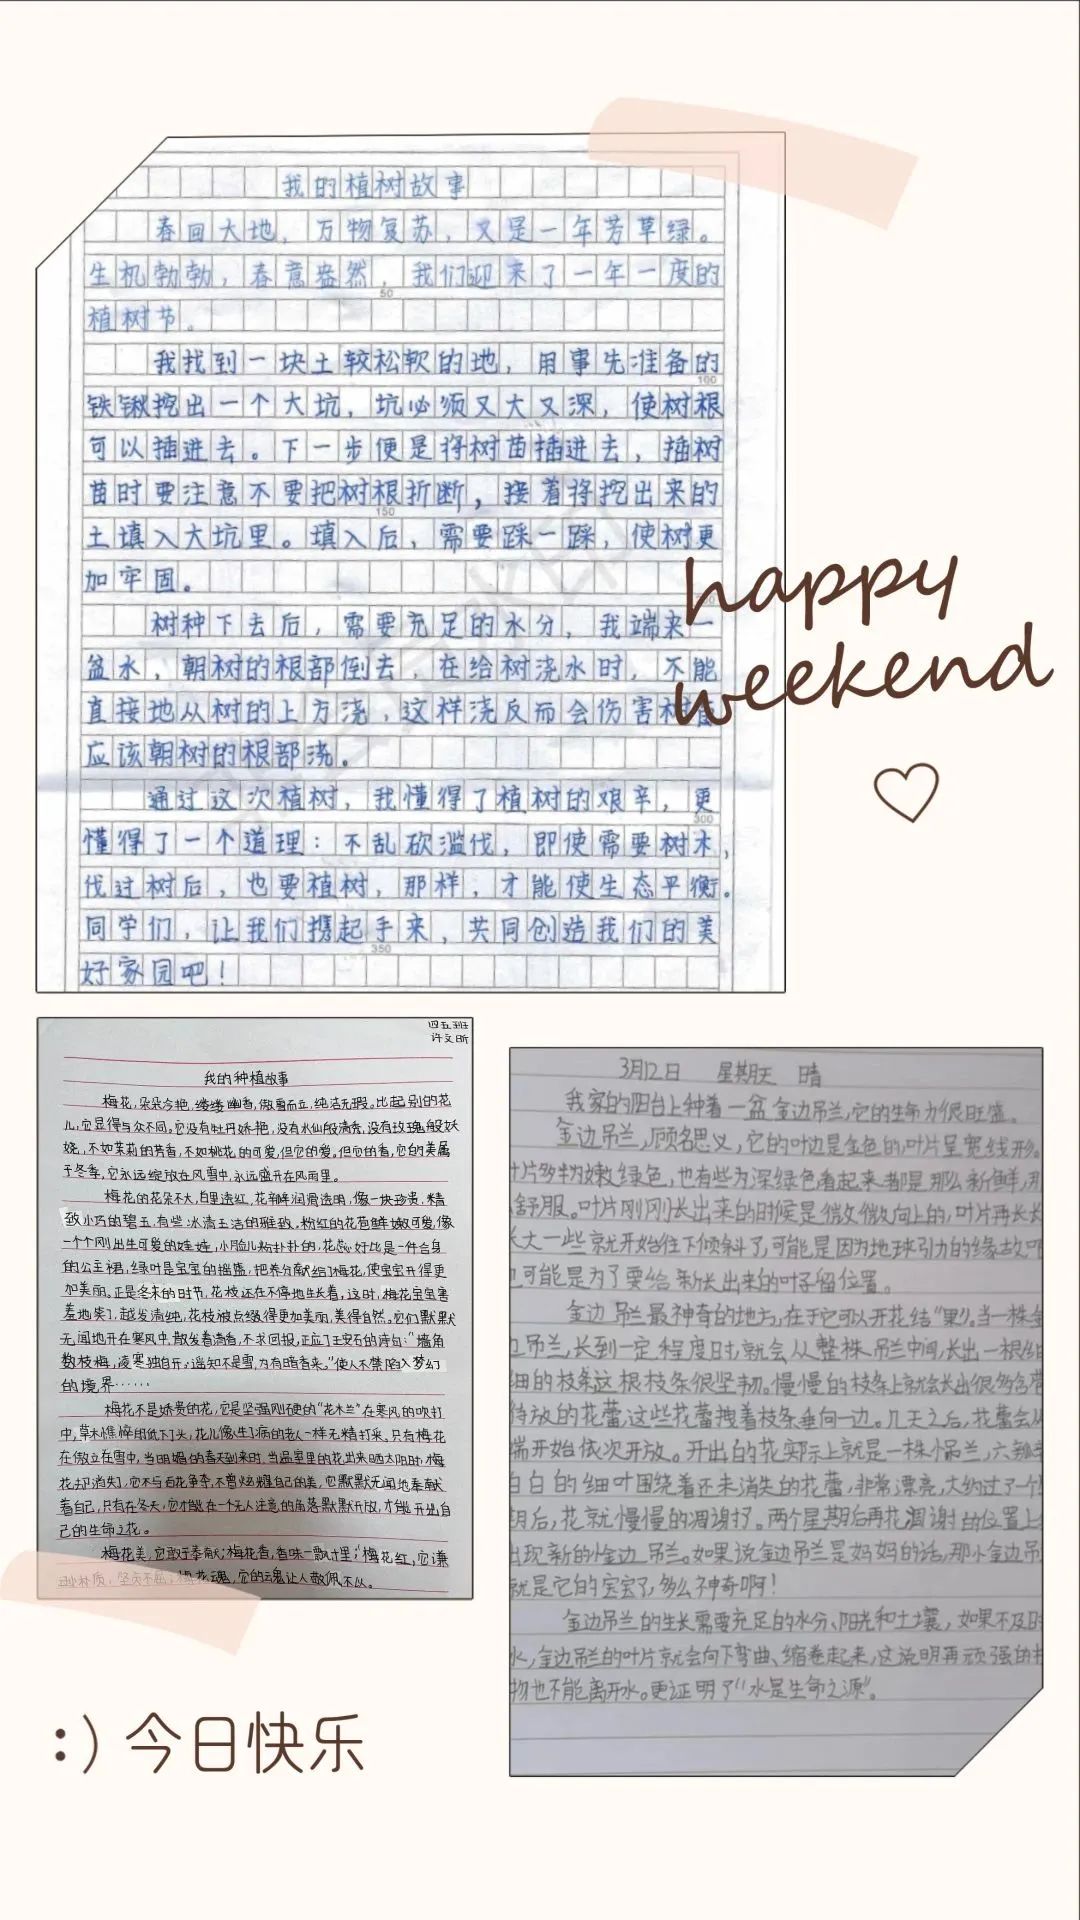 我的植树故事
春回大地，万物复苏，又是一年芳草绿。
生机勃勃，春意盎然，我们迎来了一年一度的
50
植树节。
我找到一块土较松软的地，用事先准备的
100
铁锹挖出一个大坑，坑必须又大又深，使树根
可以插进去。下一步便是将树苗插进去，插树
苗时要注意不要把树根折断，接着将挖出来的
150
土填入大坑里。填入后，需要踩一踩，使树更
加牢固。
树种下去后，需要充足的水分，我端来一
盆水，朝树的根部倒去，在给树浇水时，不能
直接地从树的上方浇，这样浇反而会伤害
应该朝树的根部浇。
通过这次植树，我懂得了植树的艰辛，更
300
懂得了一个道理：不乱砍滥伐，即使需要树木，
伐过树后，也要植树，那样，才能使生态平衡。
同学们，让我们携起手来，共同创造我们的美
350
好家园吧！
happy
weekend
四五班
许文昕
我的种植故事
梅花，朵朵冷艳，缕缕幽香，傲雪而立，纯洁无瑕。比起别的花
儿，它显得与众不同。它没有牡丹娇艳，没有水仙般清秀，没有玫瑰般妖
娆，不如茉莉的芳香，不如桃花的可爱，但它的爱，但它的香，它的美属
于冬季，它永远绽放在风雪中，永远盛开在风雨里。
梅花的花朵不大，白里透红，花瓣润滑透明，像一块珍贵，精
致小巧的碧玉，有些冰清玉洁的雅致。粉红的花苞鲜嫩可爱，像
一个个刚出生可爱的娃娃，小脸儿粉扑扑的，花蕊好比是一件合身
的公主裙，绿叶是宝宝的摇篮，把养分献给了梅花，使宝宝开得更
加美丽。正是冬末的时节，花枝还在不停地生长着，这时，梅花宝宝害
羞地笑了，越发清纯，花枝被点缀得更加美丽，美得自然。它们默默
无闻地开在寒风中，散发着清香，不求回报，正应了王安石的诗句：“墙角
数枝梅，凌寒独自开，遥知不是雪，为有暗香来。”使人不禁陷入梦幻
的境界……
梅花不是娇贵的花，它是坚强刚硬的“花木兰”在寒风的吹打
中，草木憔悴用低下了头，花儿像生了病的老人一样无精打采，只有梅花
在傲立在雪中，当明媚的春天到来时，当温室里的花出来晒太阳时，梅
花却消失了，它不与百花争李，不曾炫耀自己的美，它默默无闻地奉献
着自己，只有在冬天，它才能在一个无人注意的角落默默开放，才能开出自
己的生命之花。
梅花美，它敢于奉献；梅花香，香味一飘十里；梅花红，它谦
逊朴质，坚贞不屈；梅花魂，它的魂让人敬佩不以。
3月12日 星期天 晴
我家的阳台上种着一盆金边吊兰，它的生命力很旺盛。
金边吊兰，顾名思义，它的叶边是金色的，叶片呈宽线形。
叶片多为嫩绿色，也有些为深绿色看起来都是那么新鲜，
舒服。叶片刚刚长出来的时候是微微向上的，叶片再长长
大一些就开始往下倾斜了，可能是因为地球引力的缘故吧
也可能是为了要给新长出来的叶子留位置。
金边吊兰最神奇的地方，在于它可以开花结“果”。当一株金
边吊兰，长到一定程度时，就会从整株吊兰中间，长出一根细
细的枝条，这根枝条很坚韧。慢慢的枝条上就会长出很多含苞
待放的花蕾，这些花蕾拽着枝条垂向一边。几天之后，花蕾会从
端开始依次开放。开出的花实际上就是一株小吊兰，六
白白的细叶围绕着还未消失的花蕾，非常漂亮，大约过了一个
期后，花就慢慢的凋谢了。两个星期后再花凋谢的位置上
出现新的小金边吊兰。如果说金边吊兰是妈妈的话，那小金边吊
就是它的宝宝了，多么神奇啊！
金边吊兰的生长需要充足的水分、阳光和土壤，如果不及时
水，金边吊兰的叶片就会向下弯曲、缩卷起来，这说明再顽强的
物也不能离开水。更证明了“水是生命之源”。
:) 今日快乐